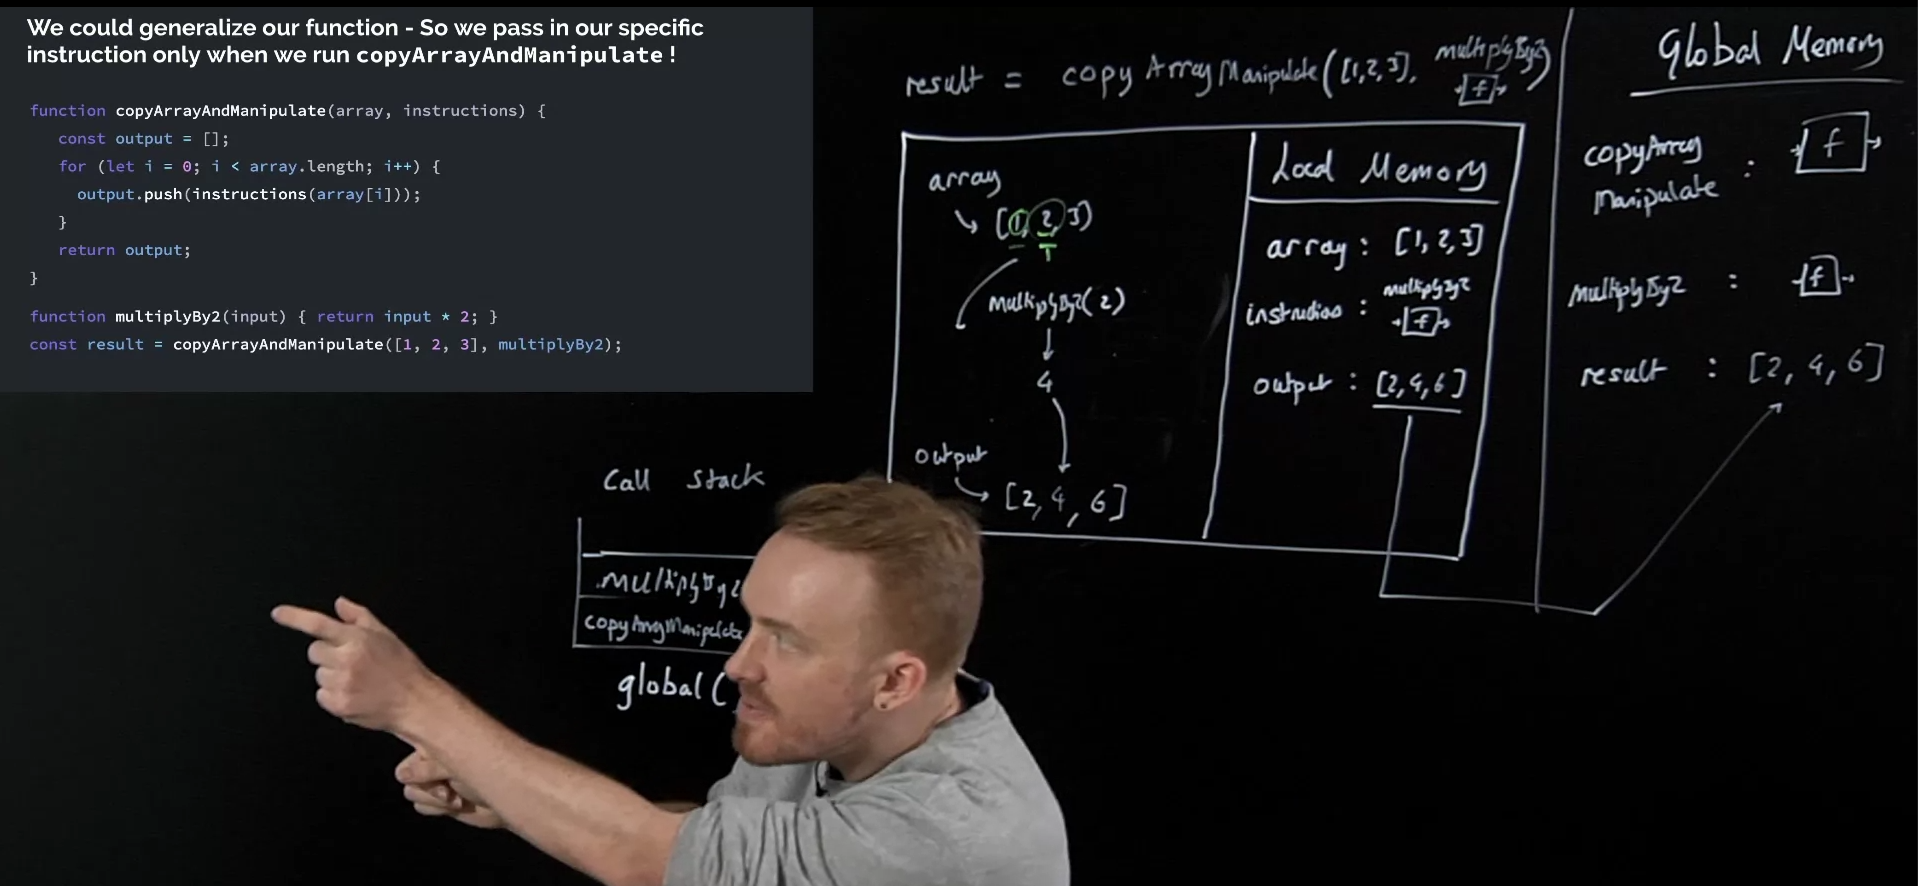 We could generalize our function - So we pass in our specific
instruction only when we run copyArrayAndManipulate !
function copyArrayAndManipulate(array, instructions) {
const output = [];
for (let i = 0; i < array.length; i++) {
output.push(instructions(array[i]));
}
return output;
}
function multiplyBy2(input) { return input * 2; }
const result = copyArrayAndManipulate([1, 2, 3], multiplyBy2);
result = copy Array Manipulate([1,2,3], multiplyBy2)
f
array
[1, 2, 3]
multiplyBy2(2)
4
output
[2, 4, 6]
Local Memory
array : [1, 2, 3]
instructions : multiplyBy2
f
output : [2, 4, 6]
Global Memory
copyArray
Manipulate : f
multiplyBy2 : f
result : [2, 4, 6]
Call Stack
multiplyBy2
copyArrayManipulate
global(